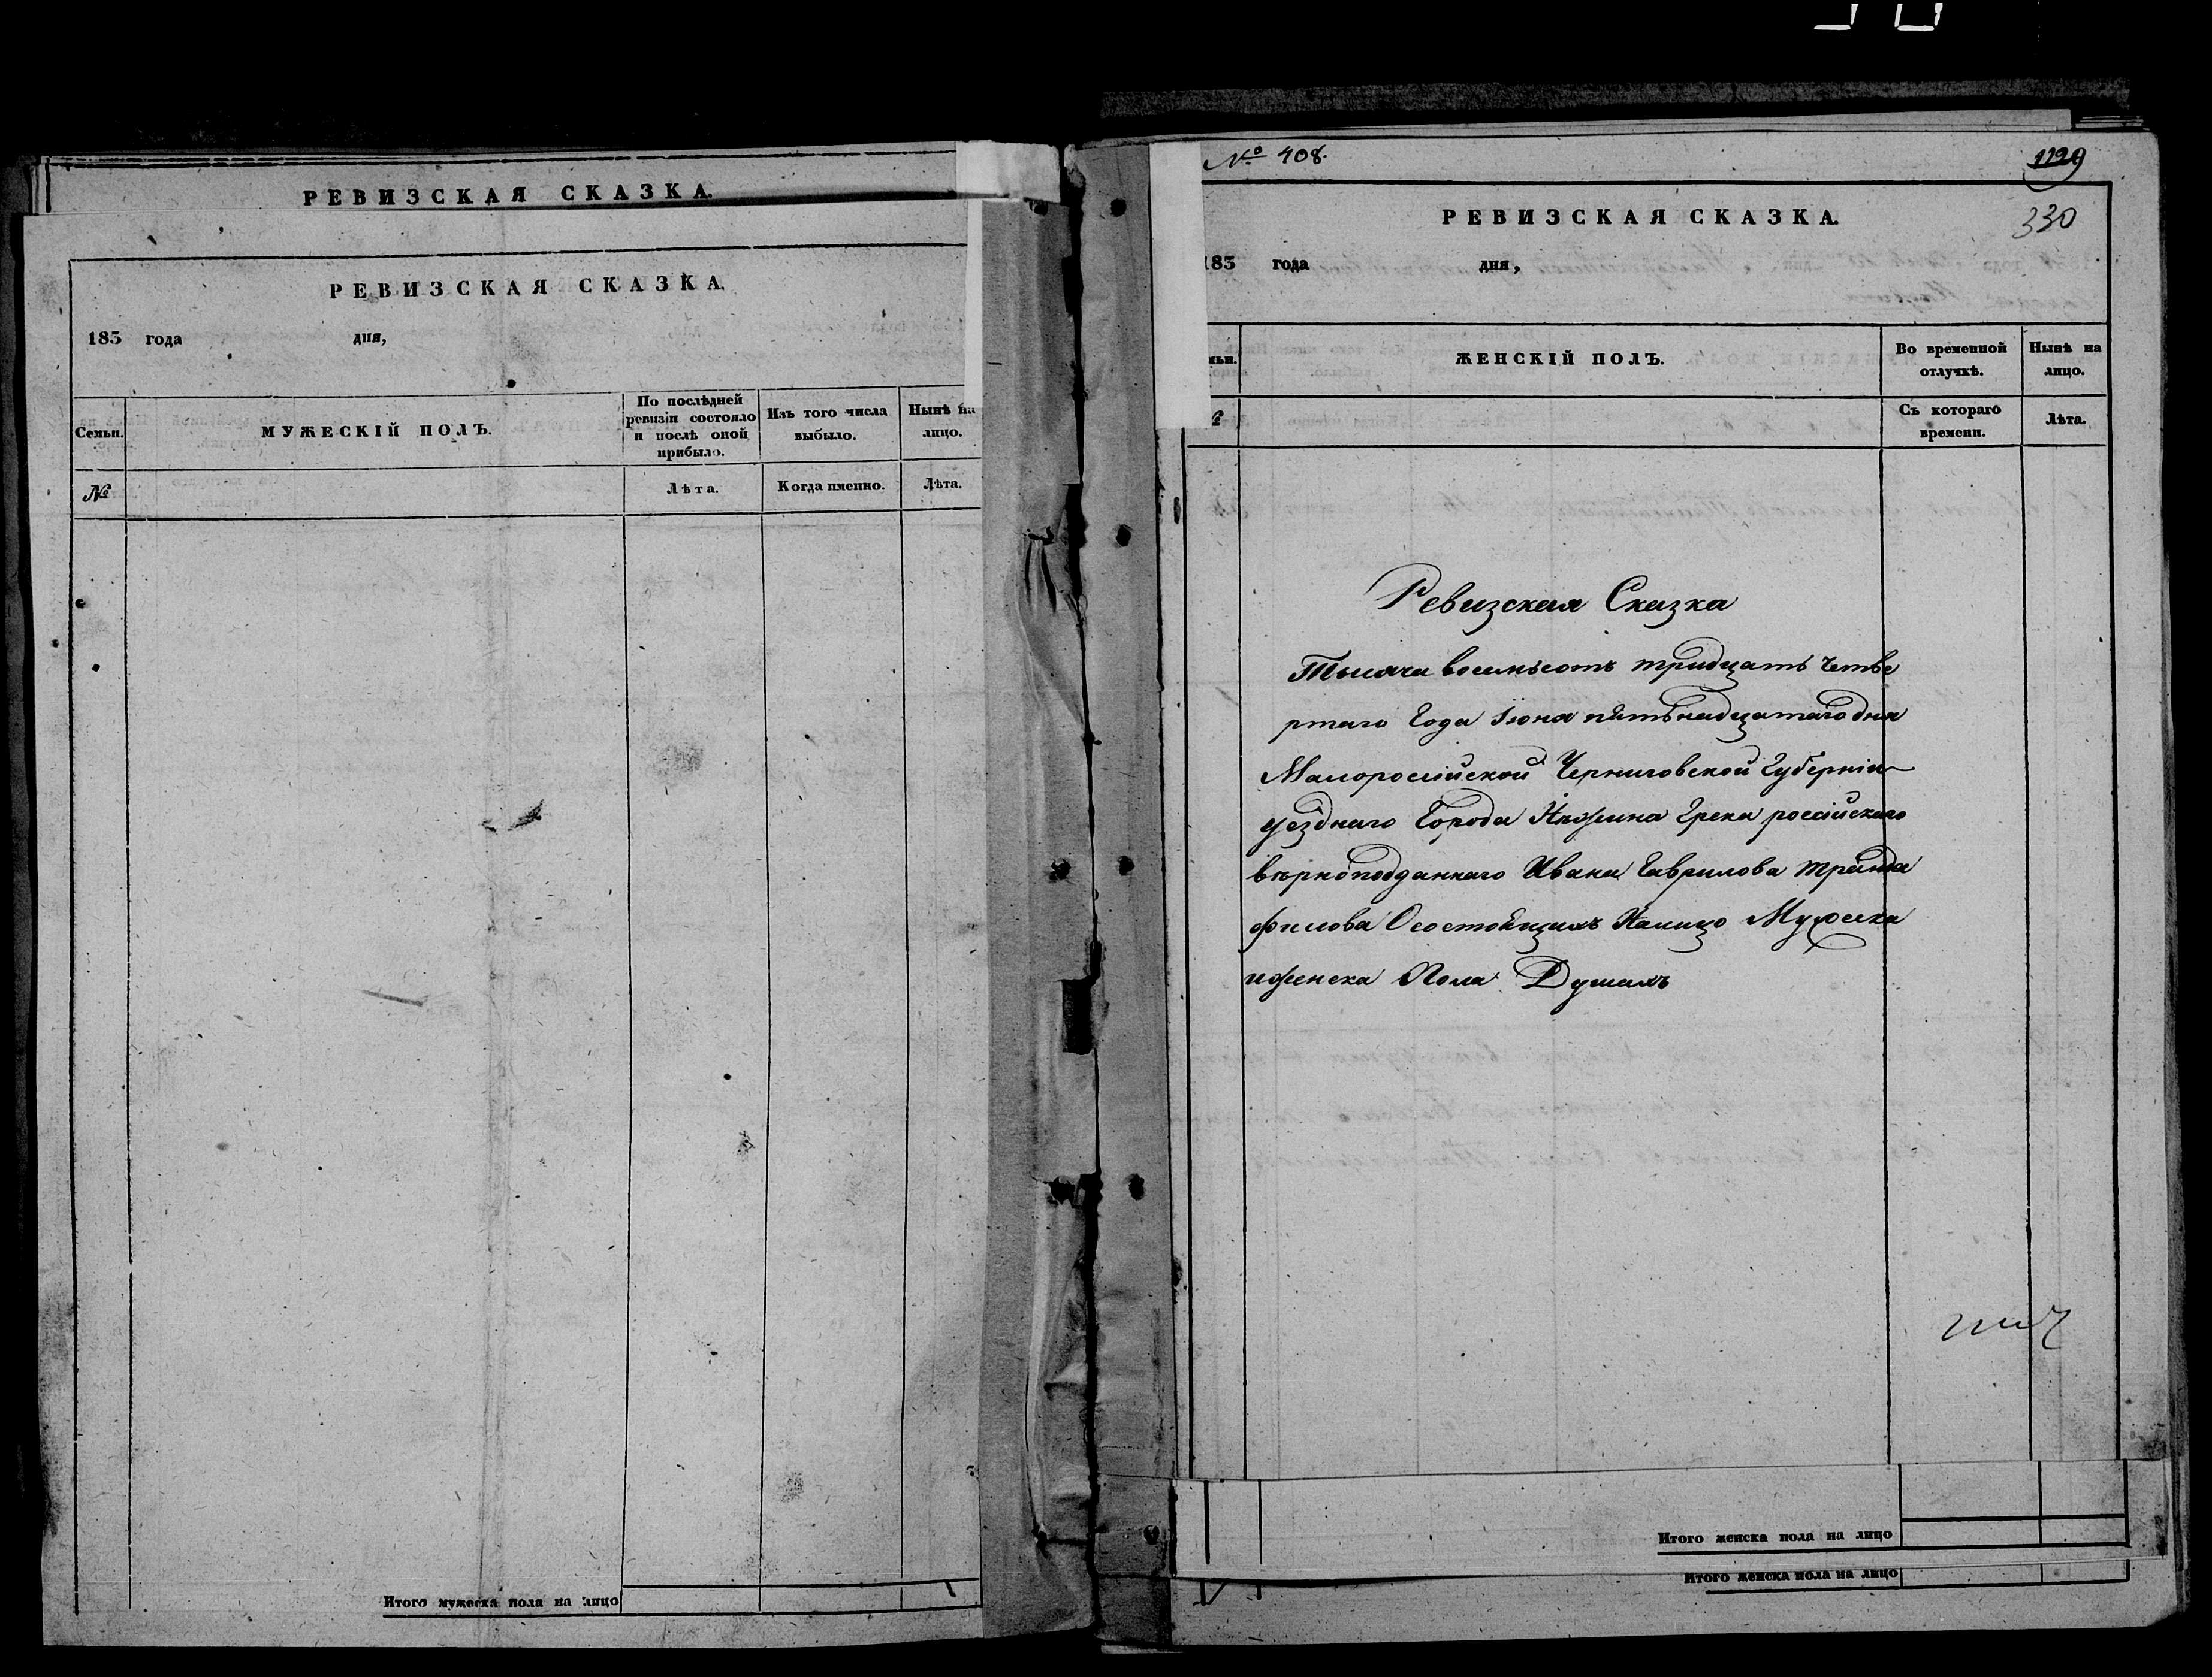 РЕВИЗСКАЯ СКАЗКА.
РЕВИЗСКАЯ СКАЗКА.
183 года дня,
Семьи.
МУЖЕСКІЙ ПОЛЪ.
По послѣдней
ревизіи состояло
и послѣ оной
прибыло.
Изъ того числа
выбыло.
Нынѣ на
лицо.
№
Лѣта.
Когда именно.
Лѣта.
Итого мужеска пола на лицо
№ 408.
330
РЕВИЗСКАЯ СКАЗКА.
183 года дня,
ЖЕНСКІЙ ПОЛЪ.
Во временной
отлучкѣ.
Нынѣ на
лицо.
Съ котораго
времени.
Лѣта.
Ревизская Сказка
Тысяча восемьсотъ тридцать четве
ртаго Года Іюня пятьнадцатаго дня
Малоросійской Черниговской Губерніи
уезднаго Города Нѣжина Грека російскаго
вѣрноподданнаго Ивана Гаврилова Транда
филова Осостоящихъ Налицо Мужеска
иженска Пола Душахъ
Итого женска пола на лицо
Итого женска пола на лицо